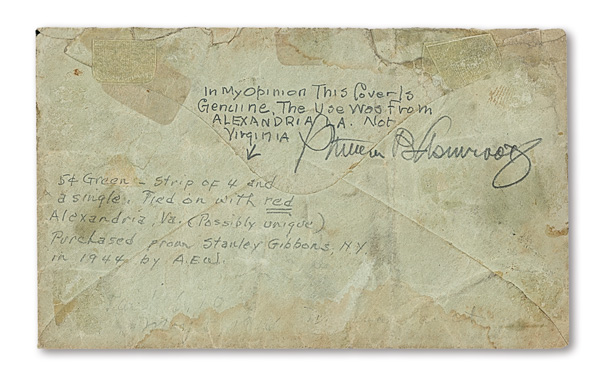 In My Opinion This Cover Is
Genuine, The Use Was From
ALEXANDRIA LA. Not
Virginia
5¢ Green – Strip of 4 and
a single. Tied on with red
Alexandria, Va. (Possibly unique)
Purchased from Stanley Gibbons, N.Y.
in 1944 by